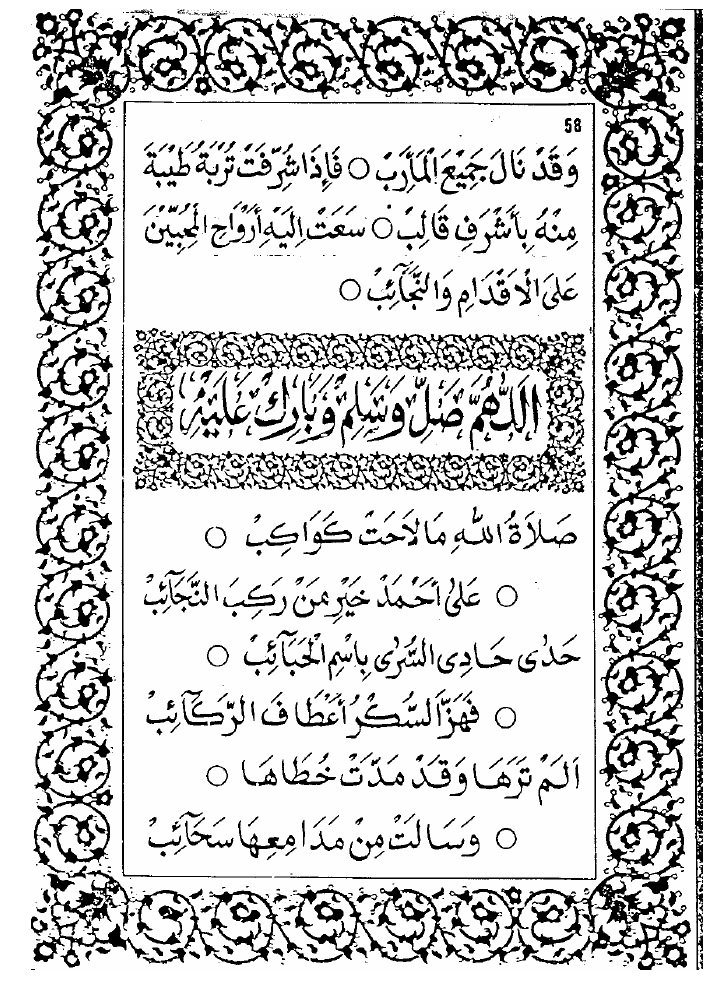 58
وَقَدْ نَالَ جَمِيْعَ الْمَأٰرِبْ ○ فَإِذَا شُرِّفَتْ تُرْبَةُ طَيْبَةَ
مِنْهُ بِأَشْرَفِ قَالِبْ ○ سَعَتْ اِلَيْهِ أَرْوَاحِ الْمُحِبِّيْنَ
عَلَى الْاَقْدَامِ وَالنَّجَآئِبْ ○
اَللّٰهُمَّ صَلِّ وَسَلِّمْ وَبَارِكْ عَلَيْهِ
صَلَاةُ اللّٰهِ مَا لَاحَتْ كَوَاكِبْ ○
○ عَلٰى أَحْمَدْ خَيْرِ مَنْ رَكِبَ النَّجَآئِبْ
حَدٰى حَادِى السُّرٰى بِاسْمِ الْحَبَآئِبْ ○
○ فَهَزَّ السُّكْرُ أَعْطَافَ الرَّكَآئِبْ
اَلَمْ تَرَهَا وَقَدْ مَدَّتْ خُطَاهَا ○
○ وَسَالَتْ مِنْ مَدَامِعِهَا سَحَآئِبْ